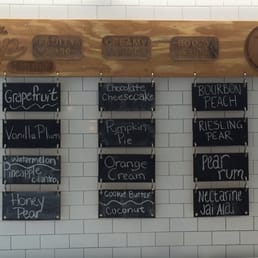 FRUITY
CREAMY
BOOZY
Grapefruit
Chocolate
Cheesecake
BOURBON
PEACH
Vanilla Plum
Pumpkin
Pie
RIESLING
PEAR
Watermelon
Pineapple
Cilantro
Orange
Cream
Pear
rum
Honey
Pear
Cookie Butter
Coconut
Nectarine
Jai Alai